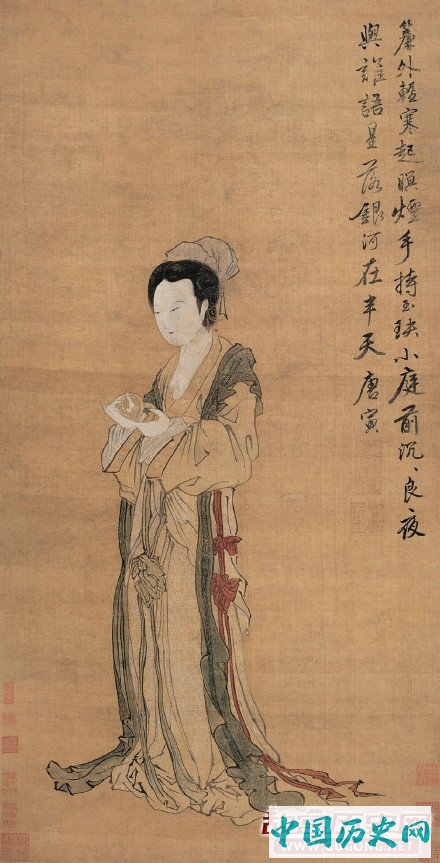 簾外輕寒起暝煙手持玉玦小庭前沉、良夜
與誰語星落銀河在半天唐寅
中国历史网